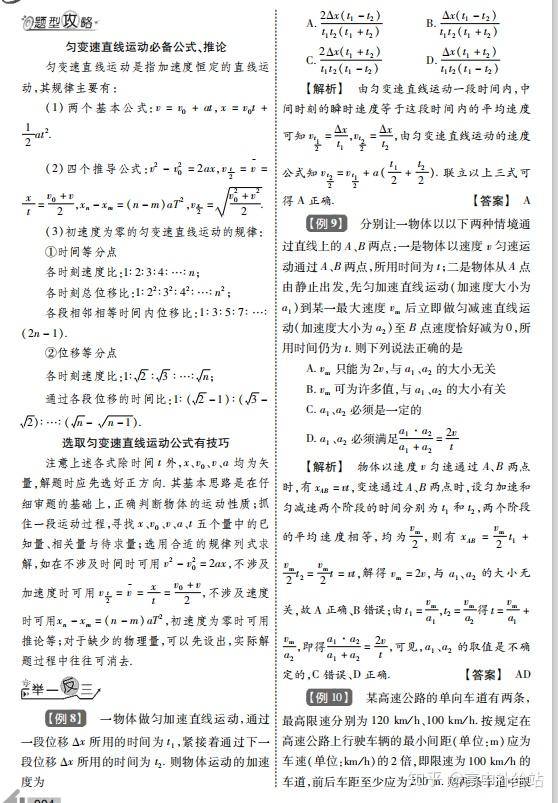 题型攻略
匀变速直线运动必备公式、推论
匀变速直线运动是指加速度恒定的直线运
动,其规律主要有:
(1)两个基本公式:v = v₀ + at, x = v₀t +
1/2 at².
(2)四个推导公式:v² - v₀² = 2ax, v_{t/2} = v̄ =
x/t = (v₀ + v)/2, xₙ - xₘ = (n - m)aT², v_{x/2} = √((v₀² + v²)/2).
(3)初速度为零的匀变速直线运动的规律:
①时间等分点
各时刻速度比:1:2:3:4:…:n;
各时刻总位移比:1:2²:3²:4²:…:n²;
各段相邻相等时间内位移比:1:3:5:7:…:
(2n - 1).
②位移等分点
各时刻速度比:1:√2:√3:…:√n;
通过各段位移的时间比:1:(√2 - 1):(√3 -
√2):…:(√n - √(n - 1)).
选取匀变速直线运动公式有技巧
注意上述各式除时间 t 外, x、v₀、v、a 均为矢
量,解题时应先选好正方向. 其基本思路是在仔
细审题的基础上,正确判断物体的运动性质;抓
住一段运动过程,寻找 x、v₀、v、a、t 五个量中的已
知量、相关量与待求量;选用合适的规律列式求
解,如在不涉及时间时可用 v² - v₀² = 2ax,不涉及
加速度时可用 v_{t/2} = v̄ = x/t = (v₀ + v)/2,不涉及速度
时可用xₙ - xₘ = (n - m)aT²,初速度为零时可用
推论等;对于缺少的物理量,可以先设出,实际解
题过程中往往可消去.
举一反三
【例 8】 一物体做匀加速直线运动,通过
一段位移 Δx 所用的时间为 t₁,紧接着通过下一
段位移 Δx 所用的时间为 t₂. 则物体运动的加速
度为
A. 2Δx(t₁ - t₂)/(t₁t₂(t₁ + t₂)) B. Δx(t₁ - t₂)/(t₁t₂(t₁ + t₂))
C. 2Δx(t₁ + t₂)/(t₁t₂(t₁ - t₂)) D. Δx(t₁ + t₂)/(t₁t₂(t₁ - t₂))
【解析】 由匀变速直线运动一段时间内,中
间时刻的瞬时速度等于这段时间内的平均速度
可知 v_{t₁/2} = Δx/t₁, v_{t₂/2} = Δx/t₂,由匀变速直线运动的速度
公式知 v_{t₂/2} = v_{t₁/2} + a(t₁/2 + t₂/2). 联立以上三式可
得 A 正确. 【答案】 A
【例 9】 分别让一物体以以下两种情境通
过直线上的 A、B 两点:一是物体以速度 v 匀速运
动通过 A、B 两点,所用时间为 t;二是物体从 A 点
由静止出发,先匀加速直线运动(加速度大小为
a₁)到某一最大速度 vₘ 后立即做匀减速直线运
动(加速度大小为 a₂)至 B 点速度恰好减为 0,所
用时间仍为 t. 则下列说法正确的是
A. vₘ 只能为 2v,与 a₁、a₂ 的大小无关
B. vₘ 可为许多值,与 a₁、a₂ 的大小有关
C. a₁、a₂ 必须是一定的
D. a₁、a₂ 必须满足 (a₁ · a₂)/(a₁ + a₂) = 2v/t
【解析】 物体以速度 v 匀速通过 A、B 两点
时,有 x_AB = vt,变速通过A、B 两点时,设匀加速和
匀减速两个阶段的时间分别为 t₁ 和 t₂,两个阶段
的平均速度相等,均为 vₘ/2,则有 x_AB = vₘ/2 t₁ +
vₘ/2 t₂ = vₘ/2 t = vt,解得 vₘ = 2v,与 a₁、a₂ 的大小无
关,故 A 正确、B 错误;由 t₁ = vₘ/a₁, t₂ = vₘ/a₂ 得 t = vₘ/a₁ +
vₘ/a₂,即得 (a₁ · a₂)/(a₁ + a₂) = 2v/t,可见, a₁、a₂ 的取值是不确
定的,C 错误、D 正确. 【答案】 AD
【例 10】 某高速公路的单向车道有两条,
最高限速分别为 120 km/h、100 km/h. 按规定在
高速公路上行驶车辆的最小间距(单位:m)应为
车速(单位:km/h)的 2 倍,即限速为 100 km/h 的
车道,前后车距至少应为 200 m.